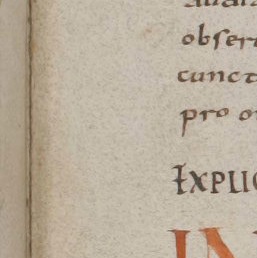 obser
cunct
pro o
EXPLIC
IN